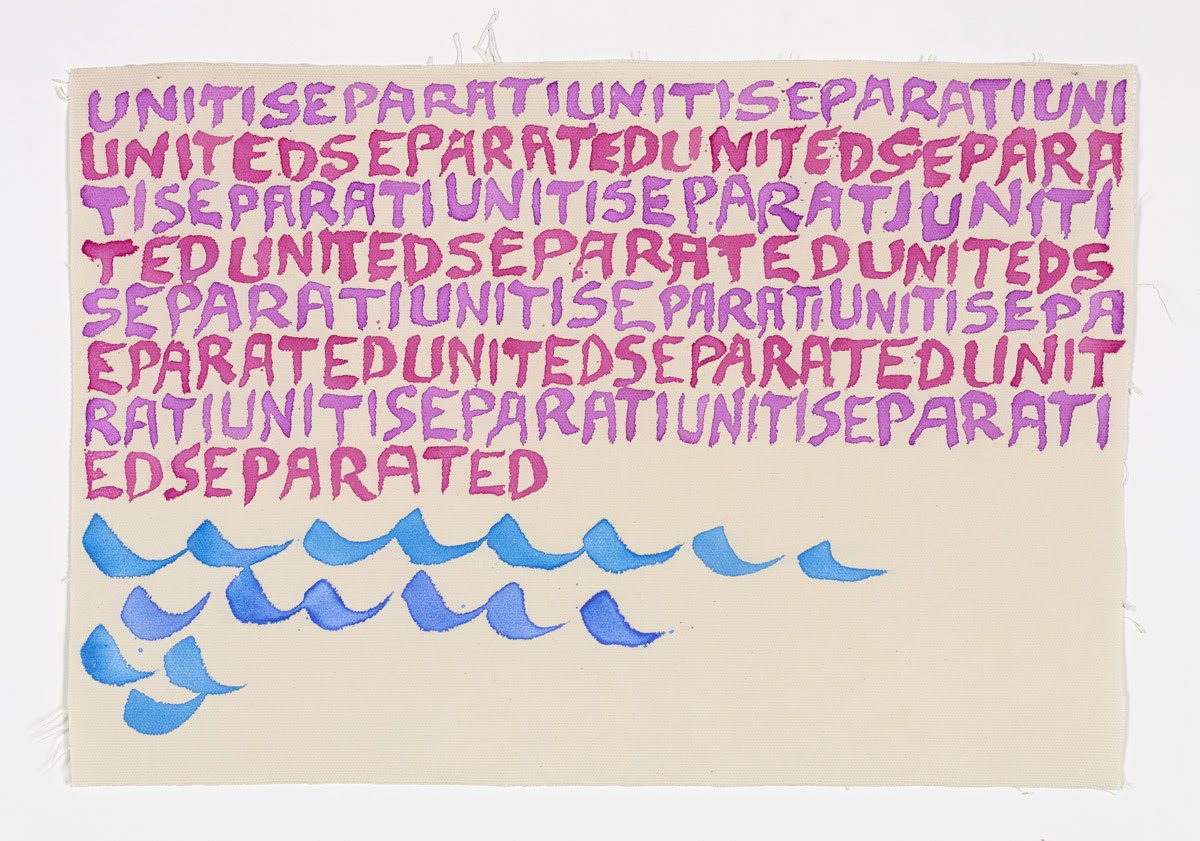 UNITISEPARATIUNITISEPARATIUNI
UNITEDSEPARATEDUNITEDSEPARA
TISEPARATIUNITISEPARATIUNITI
TEDUNITEDSEPARATEDUNITEDS
SEPARATIUNITISEPARATIUNITISEPA
EPARATEDUNITEDSEPARATEDUNIT
RATIUNITISEPARATIUNITISEPARATI
EDSEPARATED